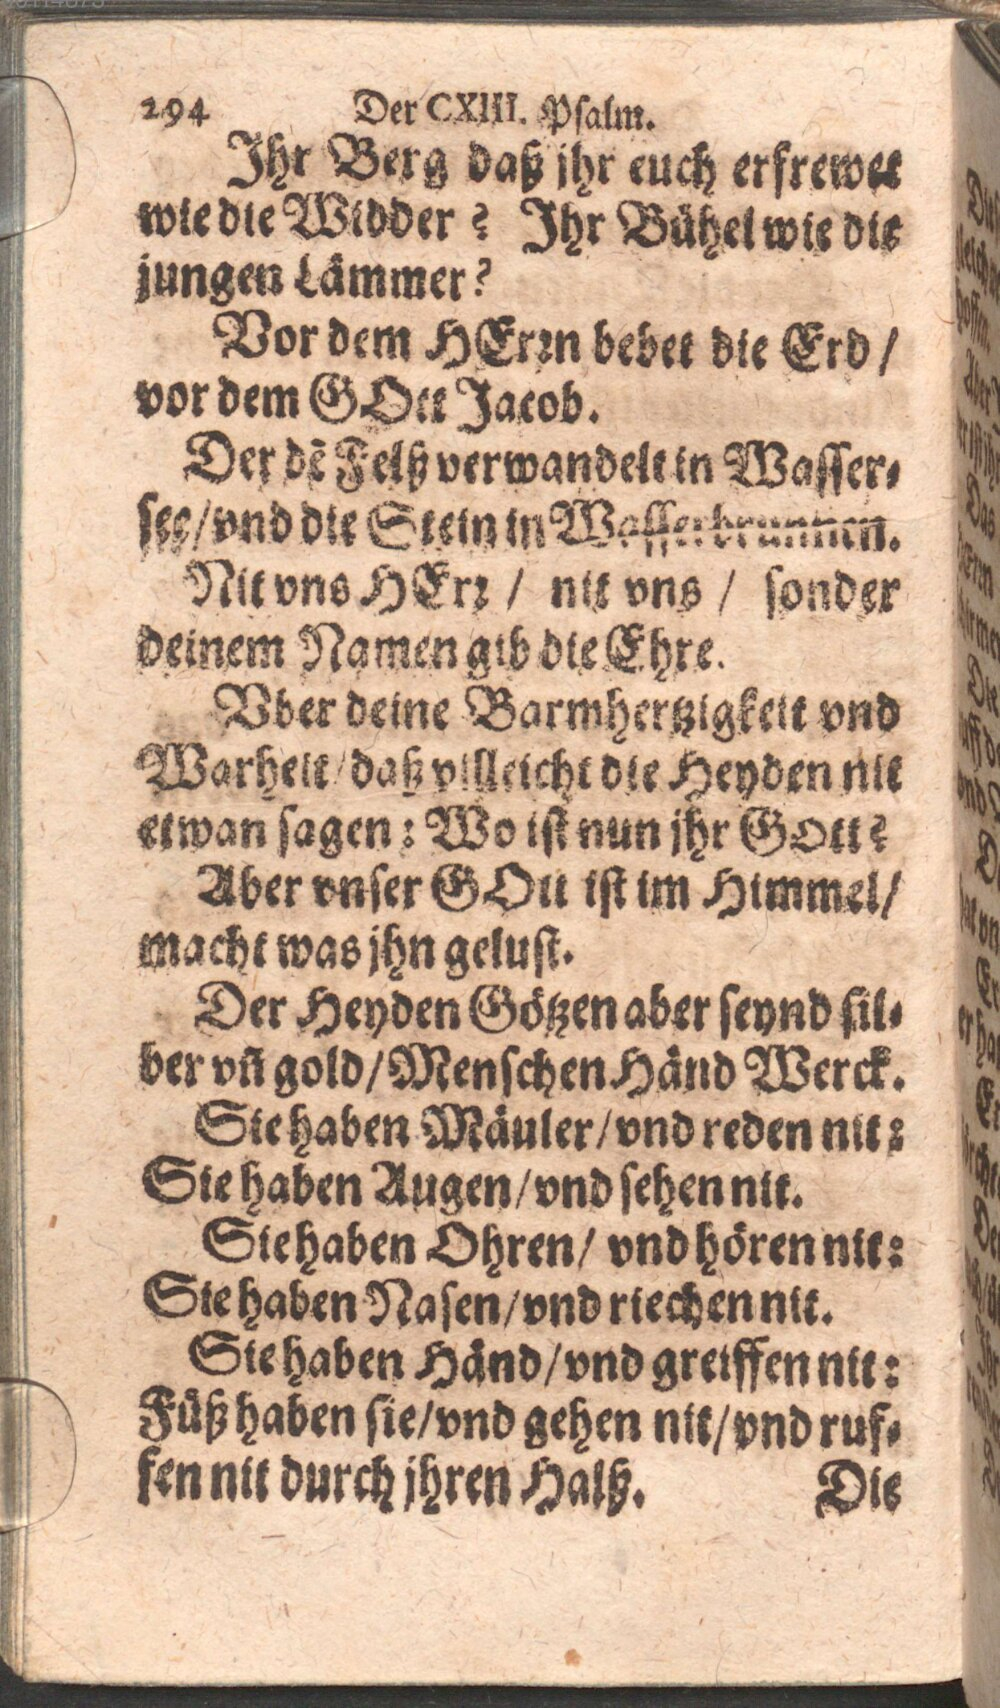 294 Der CXIII. Psalm.
Ihr Berg daß jhr euch erfrewet
wie die Widder? Ihr Bühel wie die
jungen Lämmer?
Vor dem HErꝛn bebet die Erd /
vor dem GOtt Jacob.
Der dē Felß verwandelt in Wasser-
see/vnd die Stein in Wasserbrunnen.
Nit vns HErꝛ / nit vns / sonder
deinem Namen gib die Ehre.
Vber deine Barmhertzigkeit vnd
Warheit/daß villeicht die Heyden nit
etwan sagen: Wo ist nun jhr GOtt?
Aber vnser GOtt ist im Himmel/
macht was jhn gelust.
Der Heyden Götzen aber seynd sil-
ber vñ gold/Menschen Händ Werck.
Sie haben Mäuler/vnd reden nit:
Sie haben Augen/vnd sehen nit.
Sie haben Ohren/ vnd hören nit:
Sie haben Nasen/vnd riechen nit.
Sie haben Händ/vnd greiffen nit:
Füß haben sie/vnd gehen nit/vnd ruf-
fen nit durch jhren Halß. Die